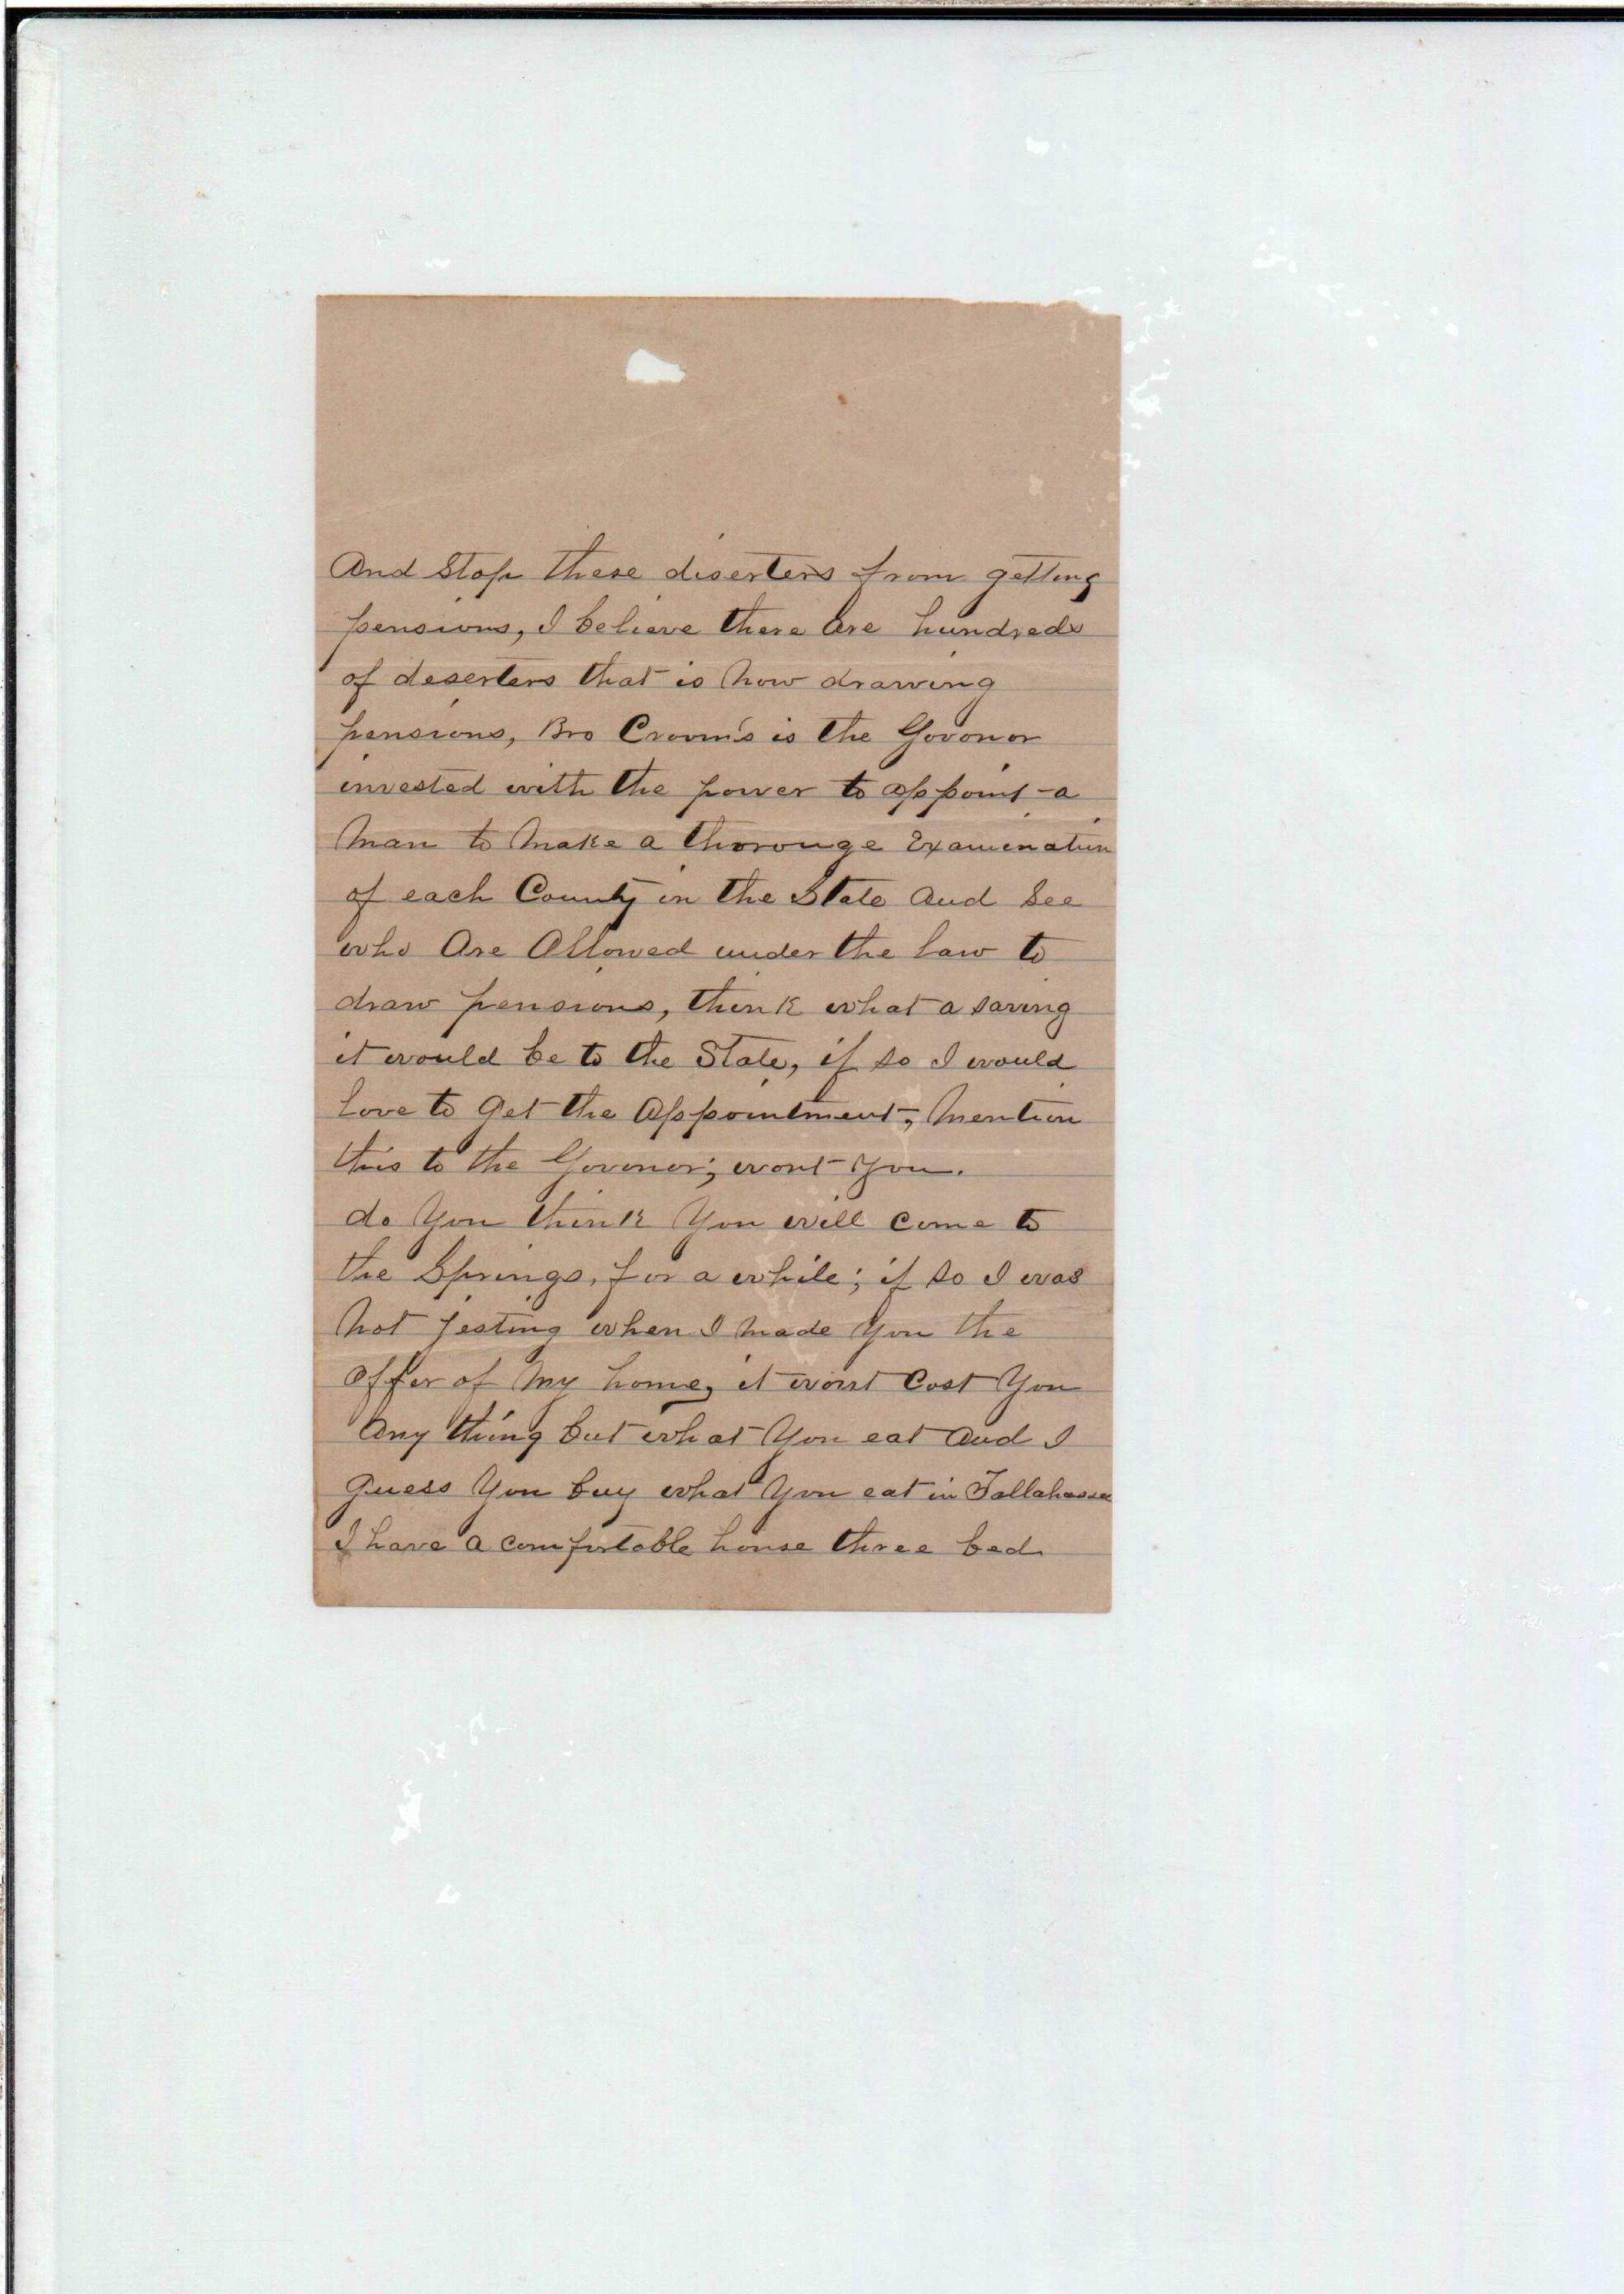 And Stop these diserters from getting
pensions, I believe there Are hundreds
of deserters that is now drawing
pensions, Bro Croom's is the Govonor
invested with the power to appoint a
Man to Make a thorouge Examination
of each County in the State and See
who Are Allowed under the law to
draw pensions, think what a saving
it would be to the State, if so I would
love to get the Appointment, Mention
this to the Govenor; wont you.
do You think You will Come to
the Springs, for a while; if so I was
Not jesting when I made You the
offer of My home, it wont Cost You
Any thing but what You eat and I
guess You buy what You eat in Tallahassee
I have a comfortable house three bed